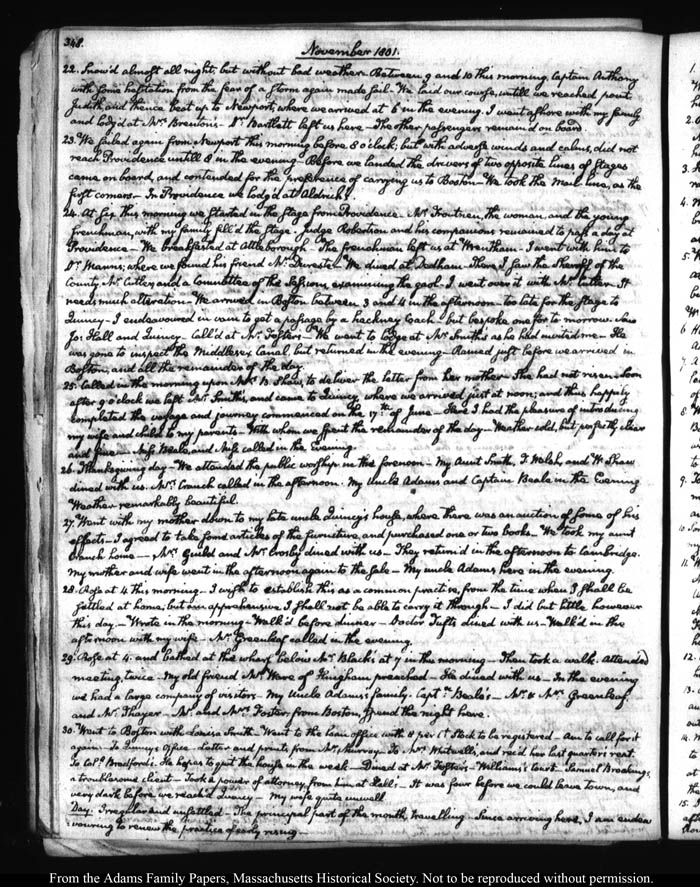 348.
November 1801.
22. Snow'd almost all night, but without bad weather. Between 9 and 10 this morning, Captain Anthony
with some hesitation from the fear of a storm again made sail. We laid our course, untill we reached point
Judith and thence beat up to Newport, where we arrived at 6 in the evening. I went ashore with my family
and lodg'd at Mrs. Brenton's. Dr. Bartlett left us here — The other passengers remain'd on board.
23. We sailed again from Newport this morning before 8 o'clock; but with adverse winds and calms, did not
reach Providence untill 8 in the evening — Before we landed the drivers of two opposite lines of Stages
came on board, and contended for the preference of carrying us to Boston — We took the Mail line, as the
first comers — In Providence we lodg'd at Aldrich's.
24. At six this morning we started in the Stage from Providence. Mr. Troutner, the woman, and the young
frenchman, with my family fill'd the Stage. Judge Robertson and his companions remained to pass a day at
Providence — We breakfasted at Attleborough — The frenchman left us at Wrentham. I went with him to
Dr. Mann's; where we found his friend Mr. We dined at Dedham. There I saw the Sheriff of the
County, Mr. Cutler, and a Committee of the Session, examining the gaol. I went over it with Mr. Cutler. It
needs much alteration. We arrived in Boston between 3 and 4 in the afternoon — too late for the stage to
Quincy — I endeavoured in vain to get a passage by a hackney Coach — but bespoke one for to morrow. Saw
Jos: Hall and Quincy. Call'd at Mr. Foster's — We went to lodge at Mr. Smith's as he had invited me — He
was gone to inspect the Middlesex Canal, but returned in the evening — Rained just before we arrived in
Boston, and all the remainder of the day.
25. Called in the morning upon Mrs. B. Shaw, to deliver the letter from her mother. She had not risen. Soon
after 9 o'clock we left Mr. Smith's, and came to Quincy, where we arrived just at noon; and thus happily
completed the voyage and journey commenced on the 17th of June — Here I had the pleasure of introducing
my wife and child to my parents — With whom we spent the remainder of the day — Weather cold, but perfectly clear
and fine — Miss Beale and Miss called in the evening.
26. Thanksgiving day — We attended the public worship in the forenoon — My Aunt Smith, T. Welsh, and W. Shaw
dined with us. Mrs. Cranch called in the afternoon. My uncle Adams and Captain Beale in the Evening
Weather remarkably beautiful.
27. Went with my mother down to my late uncle Quincy's house, where there was an auction of some of his
effects — I agreed to take some articles of the furniture, and purchased one or two books — We took my aunt
Cranch home — Mrs. Guild and Mrs. Crosby dined with us — They return'd in the afternoon to Cambridge.
My mother and wife went in the afternoon again to the Sale — My uncle Adams here in the evening.
28. Rose at 4 this morning — I wish to establish this as a common practise, from the time when I shall be
settled at home; but am apprehensive I shall not be able to carry it through — I did but little however
this day — Wrote in the morning — Walk'd before dinner — Doctor Tufts dined with us — Walk'd in the
afternoon with my wife — Mr. Greenleaf called in the evening.
29. Rose at 4. and bathed at the wharf below Mr. Black's at 7 in the morning — Then took a walk. Attended
meeting, twice. My old friend Mr. Ware of Hingham preached — He dined with us — In the evening
we had a large company of visitors — My uncle Adams's family. Captn. Beale's — Mr. & Mrs. Greenleaf,
and Mr. Thayer — Mr. and Mrs. Foster from Boston, spend the night here.
30. Went to Boston with Louisa Smith. Went to the loan office with 8 per Ct. Stock to be registered — Am to call for it
again — To Quincy's Office. Letter and prints from Mr. Murray. To Mr. Whitwell; and rec'd her last quarter's rent.
To Col. Bradford's. He hopes to quit the house in the week — Dined at Mr. Foster's — William's Court. Samuel
a troublesome client — Took a power of attorney, from him at Hall's — It was four before we could leave town, and
very dark before we reached Quincy — My wife quite unwell.
Day. Irregular and unsettled — The principal part of the month, travelling. Since arriving here, I am endea-
vouring to renew the practice of early rising —
From the Adams Family Papers, Massachusetts Historical Society. Not to be reproduced without permission.